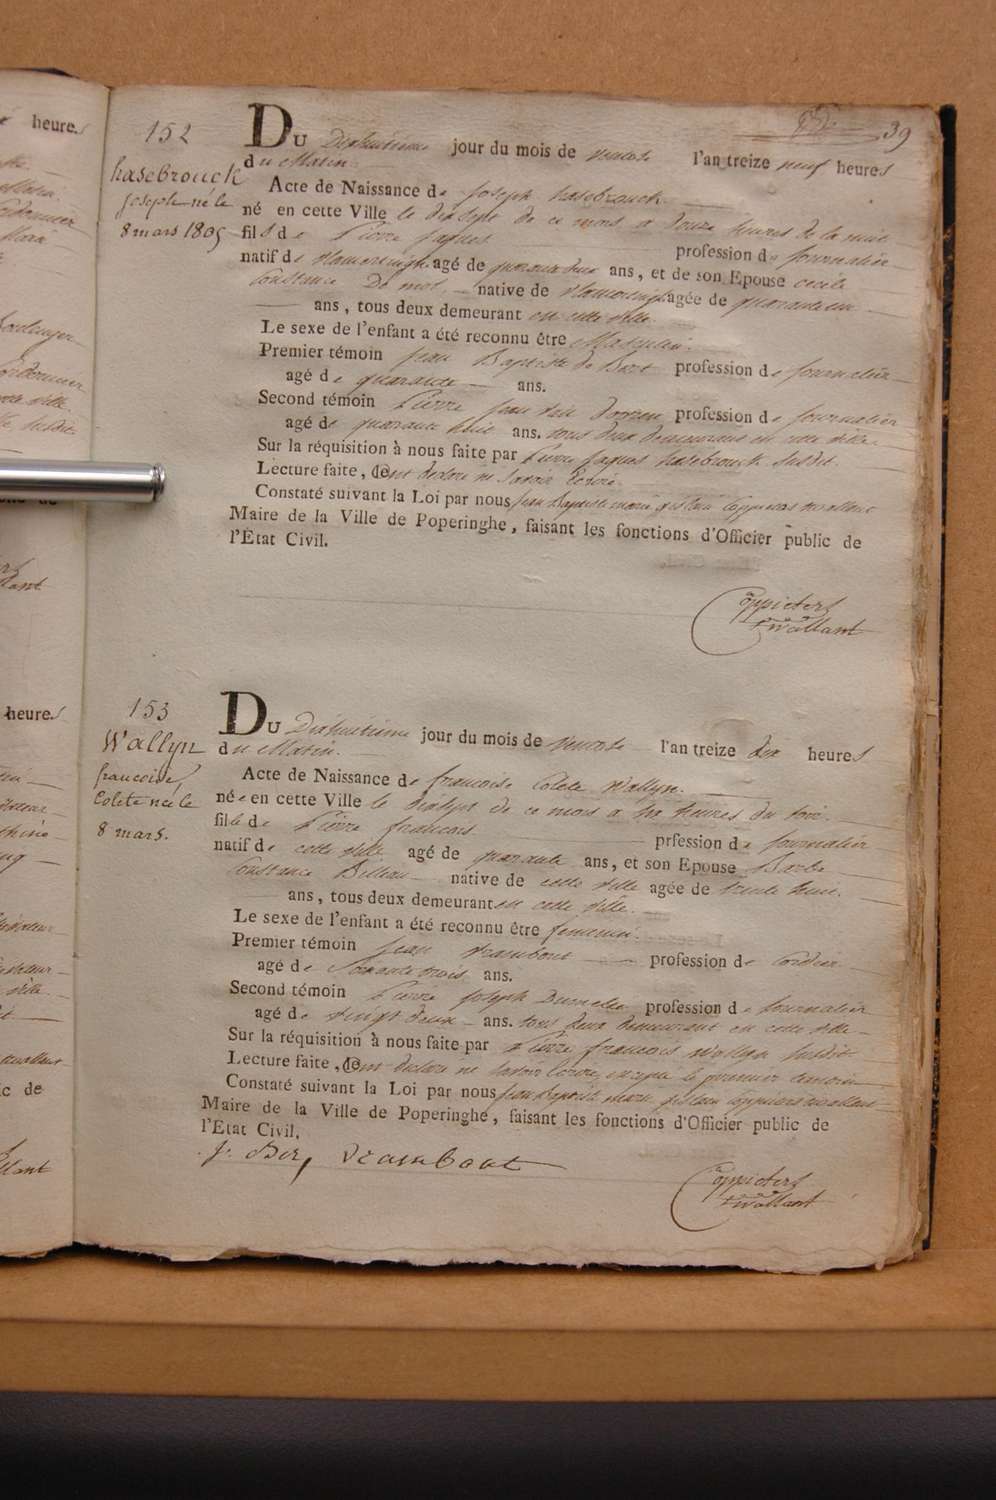 39
152
hasebrouck
joseph né le
8 mars 1805
DU Dixhuitieme jour du mois de ventose l'an treize neuf heures
du Matin.
Acte de Naissance de Joseph hasebrouck
né en cette Ville le dixsept de ce mois a douze heures de la nuit
fils de Pierre Jaques profession de journalier
natif de vlamertinghe agé de quarante deux ans, et de son Epouse cecile
Constance De mol native de vlamertinghe agée de quarante un
ans, tous deux demeurant en cette ville.
Le sexe de l'enfant a été reconnu être Masculin.
Premier témoin jean Baptiste de profession de journalier
agé de quarante ans.
Second témoin Pierre jean profession de journalier
agé de quarante huit ans. tous deux demeurant en cette ville.
Sur la réquisition à nous faite par Pierre Jaques hasebrouck susdit.
Lecture faite, ont declaré ne savoir Ecrire.
Constaté suivant la Loi par nous jean Baptiste marie gislain Coppieters twallant
Maire de la Ville de Poperinghe, faisant les fonctions d'Officier public de
l'État Civil.
Coppieters
t'wallant
153
Wallyn
francoise
Colete née le
8 mars.
DU Dixhuitieme jour du mois de ventose l'an treize dix heures
du Matin.
Acte de Naissance de francoise Colete Wallyn.
née en cette Ville le dixsept de ce mois a six heures du soir.
fille de Pierre francois prfession de journalier
natif de cette ville agé de quarante ans, et son Epouse Barbe
Constance Billiau native de cette ville agée de trente
ans, tous deux demeurant en cette ville.
Le sexe de l'enfant a été reconnu être femenin.
Premier témoin jean vrambout profession de cordier
agé de Soixante trois ans.
Second témoin Pierre joseph profession de journalier
agé de vingt deux ans. tous deux demeurant en cette ville
Sur la réquisition à nous faite par Pierre francois Wallyn susdit
Lecture faite, ont declaré ne savoir Ecrire, excepté le premier temoin
Constaté suivant la Loi par nous jean Baptiste marie gislain Coppieters twallant
Maire de la Ville de Poperinghe, faisant les fonctions d'Officier public de
l'État Civil.
vrambout
Coppieters
t'wallant